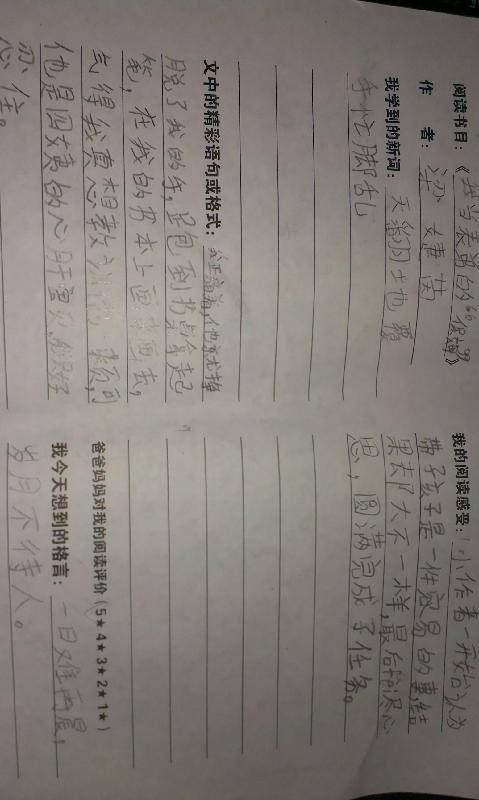 阅读书目：《我当表弟的“保姆”》
作者：梁婕茵
我学到的新词：天翻地覆
手忙脚乱
文中的精彩语句或格式：我正痛着，他就挣
脱了我的手，是包到书台拿起
笔，在我的书本上画来画去，
气得我真想教训他
他是四姨的心肝宝贝，最好
忍住。
我的阅读感受：小作者一开始认为
带孩子是一件容易的事，结
果却大不一样，最后
思，圆满完成了任务。
爸爸妈妈对我的阅读评价（5★4★3★2★1★）
我今天想到的格言：一日难再晨，
岁月不待人。